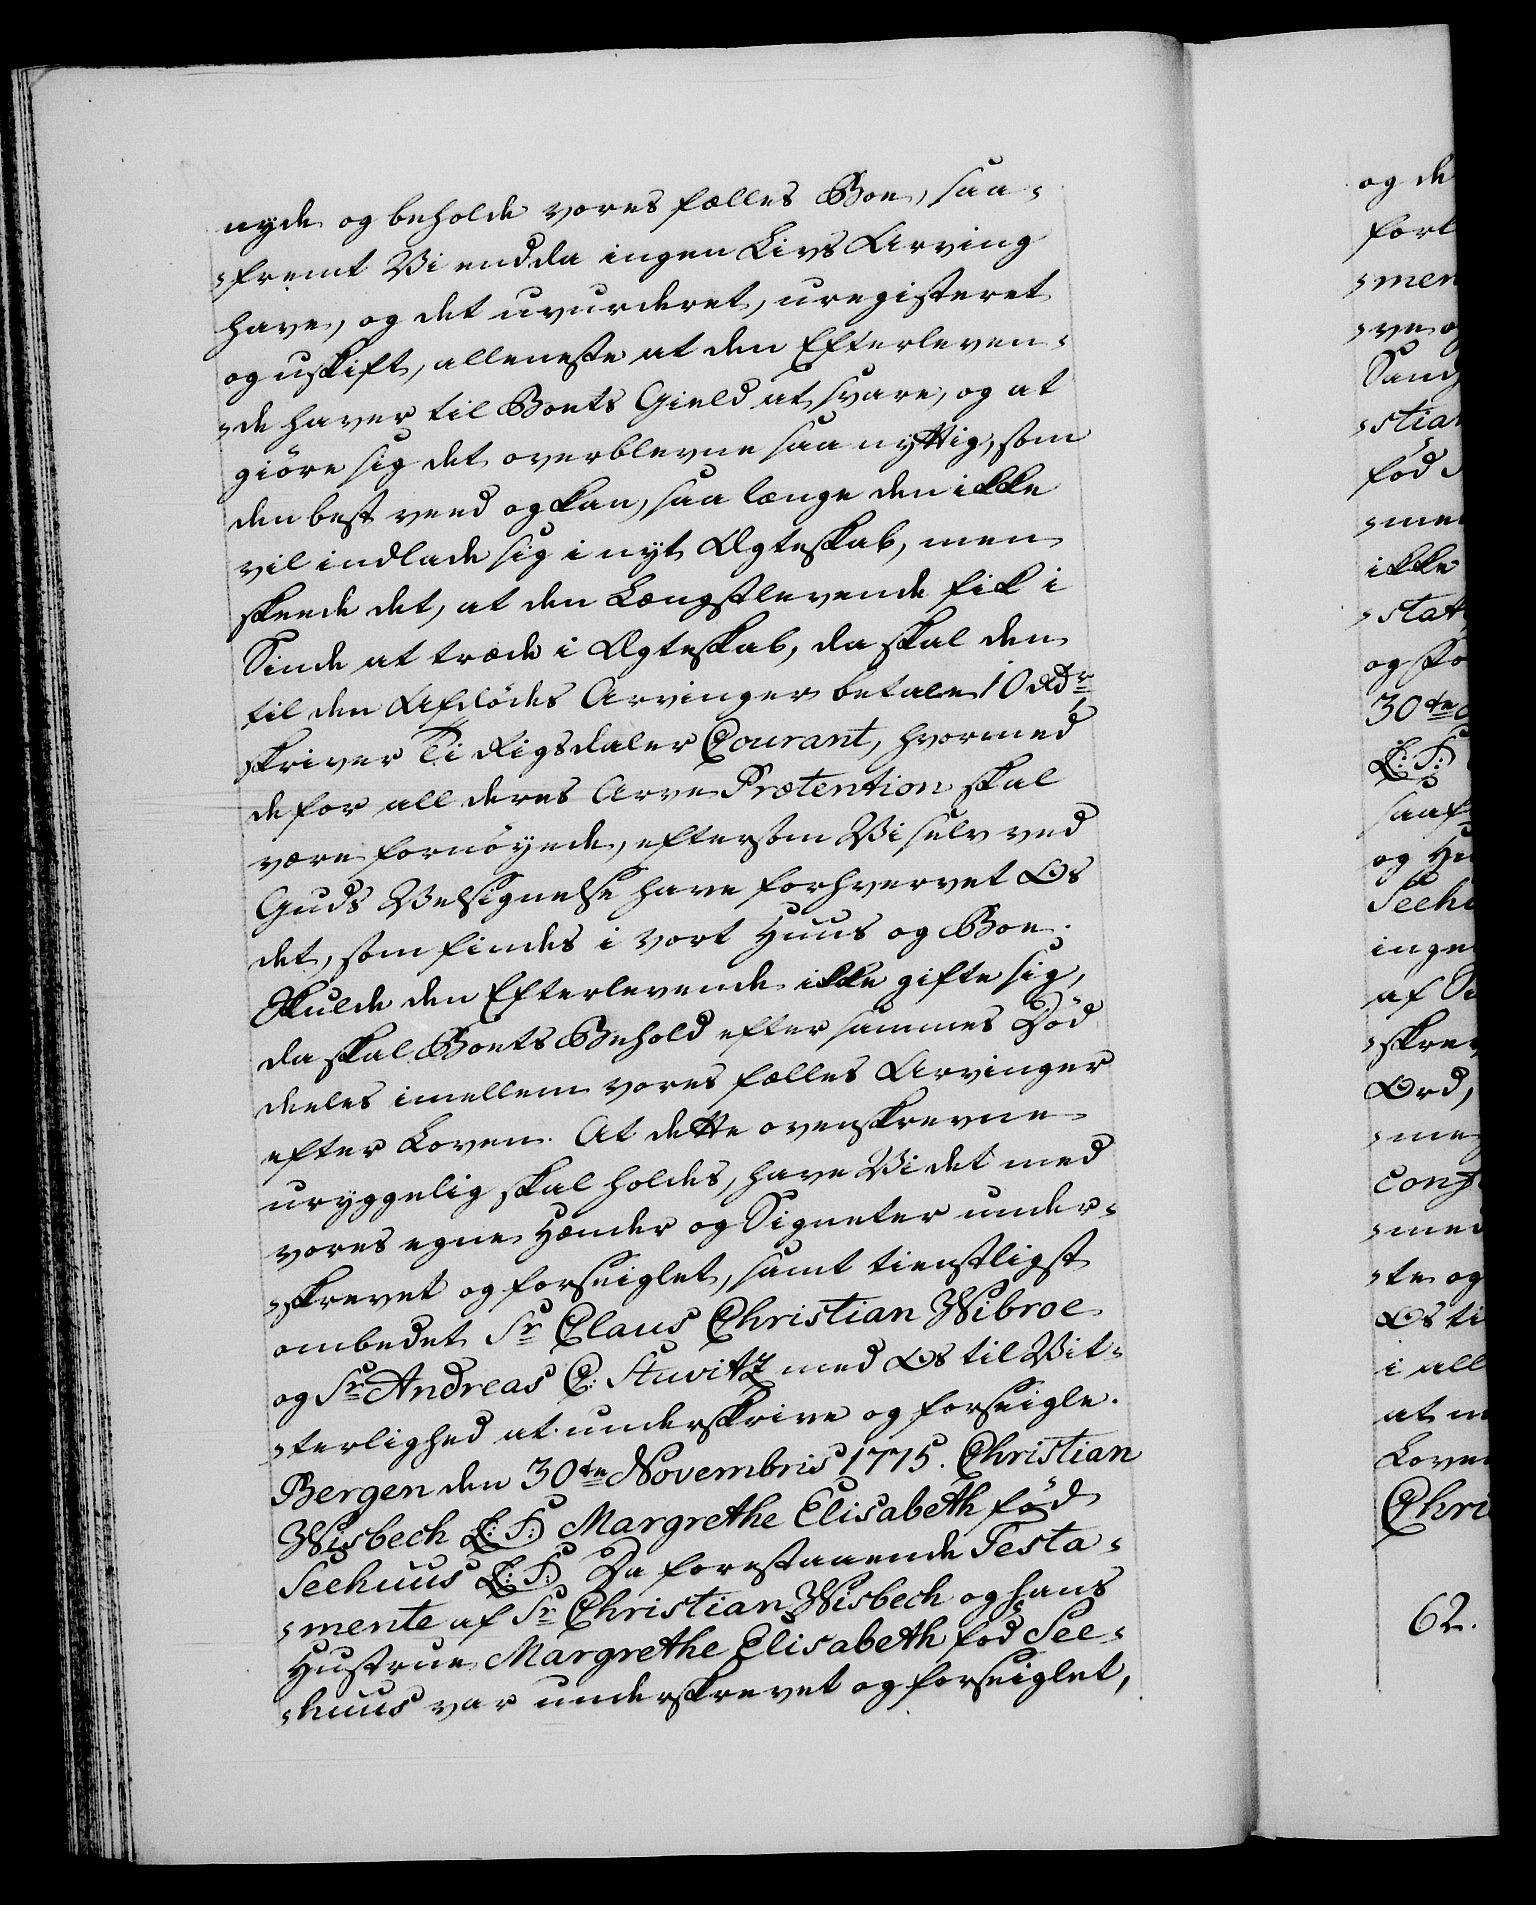 nyde og beholde vores fælles Boe, saa-
-fremt Vi endda ingen Livs Arving
have, og det uvurderet, uregisteret
og uskift, alleneste at den Efterleven-
-de haver til Boets Gield at svare, og at
giöre sig det overblevne saa nyttig, som
den best veed og kan, saa længe den ikke
vil indlade sig i nyt Ægteskab, men
skeede det, at den Længstlevende fik i
Sinde at træde i Ægteskab, da skal den
til den Afdödes Arvinger betale 10 Rdr
skriver Ti Rigsdaler Courant, hvormed
de for all deres Arve Prætention skal
være fornöyede, eftersom Vi selv ved
Guds Velsignelse have forhvervet Os
det, som findes i vort Huus og Boe.
Skulde den Efterlevende ikke gifte sig,
da skal Boets Behold efter sammes Död
deeles imellem vores fælles Arvinger
efter Loven. At dette ovenskrevne
uryggelig skal holdes, have Vi det med
vores egne Hænder og Signeter under-
-skrevet og forseiglet, samt tienstligst
ombedet Sr Claus Christian Wibroe
og Sr Andreas C: Stuvitz med Os til Vit-
-terlighed at underskrive og forseigle.
Bergen den 30te Novembris 1775. Christian
Wisbech L: S: Margrethe Elisabeth föd
Seehuus L: S: Da forestaaende Testa-
-mente af Sr Christian Wisbech og hans
Hustrue Margrethe Elisabeth föd See-
-huus var underskrevet og forseiglet,
og de
forl
-men
-ve o
Sand
-stian
föd
-me
ikke
-stat
og fo
30te
L: S:
saaf
og Hu
Seehu
inge
af Si
-skrev
Ord,
-me
conf
-med
-te og
Os ti
i all
at
Love
Chri
62.